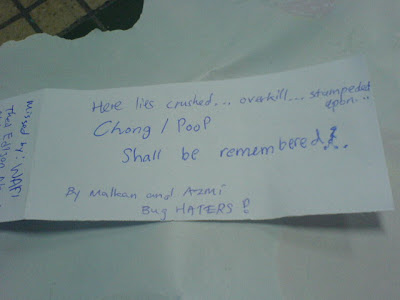 Here lies crushed... overkill... stumpedet
upon...
Chong / PooP
Shall be remembered!...
By Malkan and Azmi
Bug HATERS!
Missed by: WAFI